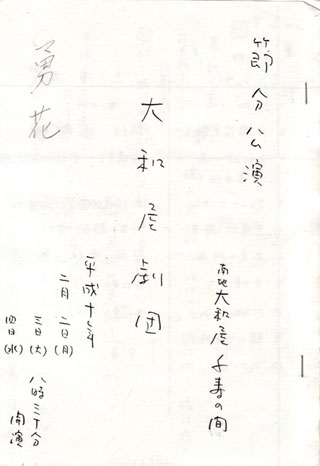 節分公演
南地大和屋 千寿の間
大和屋劇団
平成十年
二月 二日(月)
三日(火)
四日(水)
八時三十分
開演
勇花